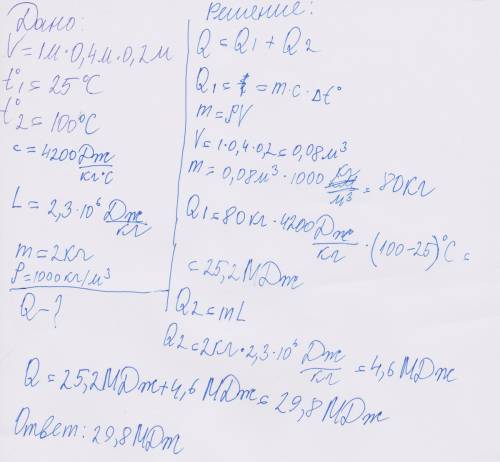 Дано:
V = 1м · 0,4м · 0,2м
t°1 = 25°C
t°2 = 100°C
c = 4200 Дж/кг·°C
L = 2,3·10⁶ Дж/кг
m = 2кг
ρ = 1000кг/м³
Q - ?
Решение:
Q = Q1 + Q2
Q1 = m·c·Δt°
m = ρV
V = 1·0,4·0,2 = 0,08м³
m = 0,08м³ · 1000 кг/м³ = 80кг
Q1 = 80кг · 4200 Дж/кг · (100-25)°C =
= 25,2МДж
Q2 = mL
Q2 = 2кг · 2,3·10⁶ Дж/кг = 4,6МДж
Q = 25,2МДж + 4,6МДж = 29,8МДж
Ответ: 29,8МДж